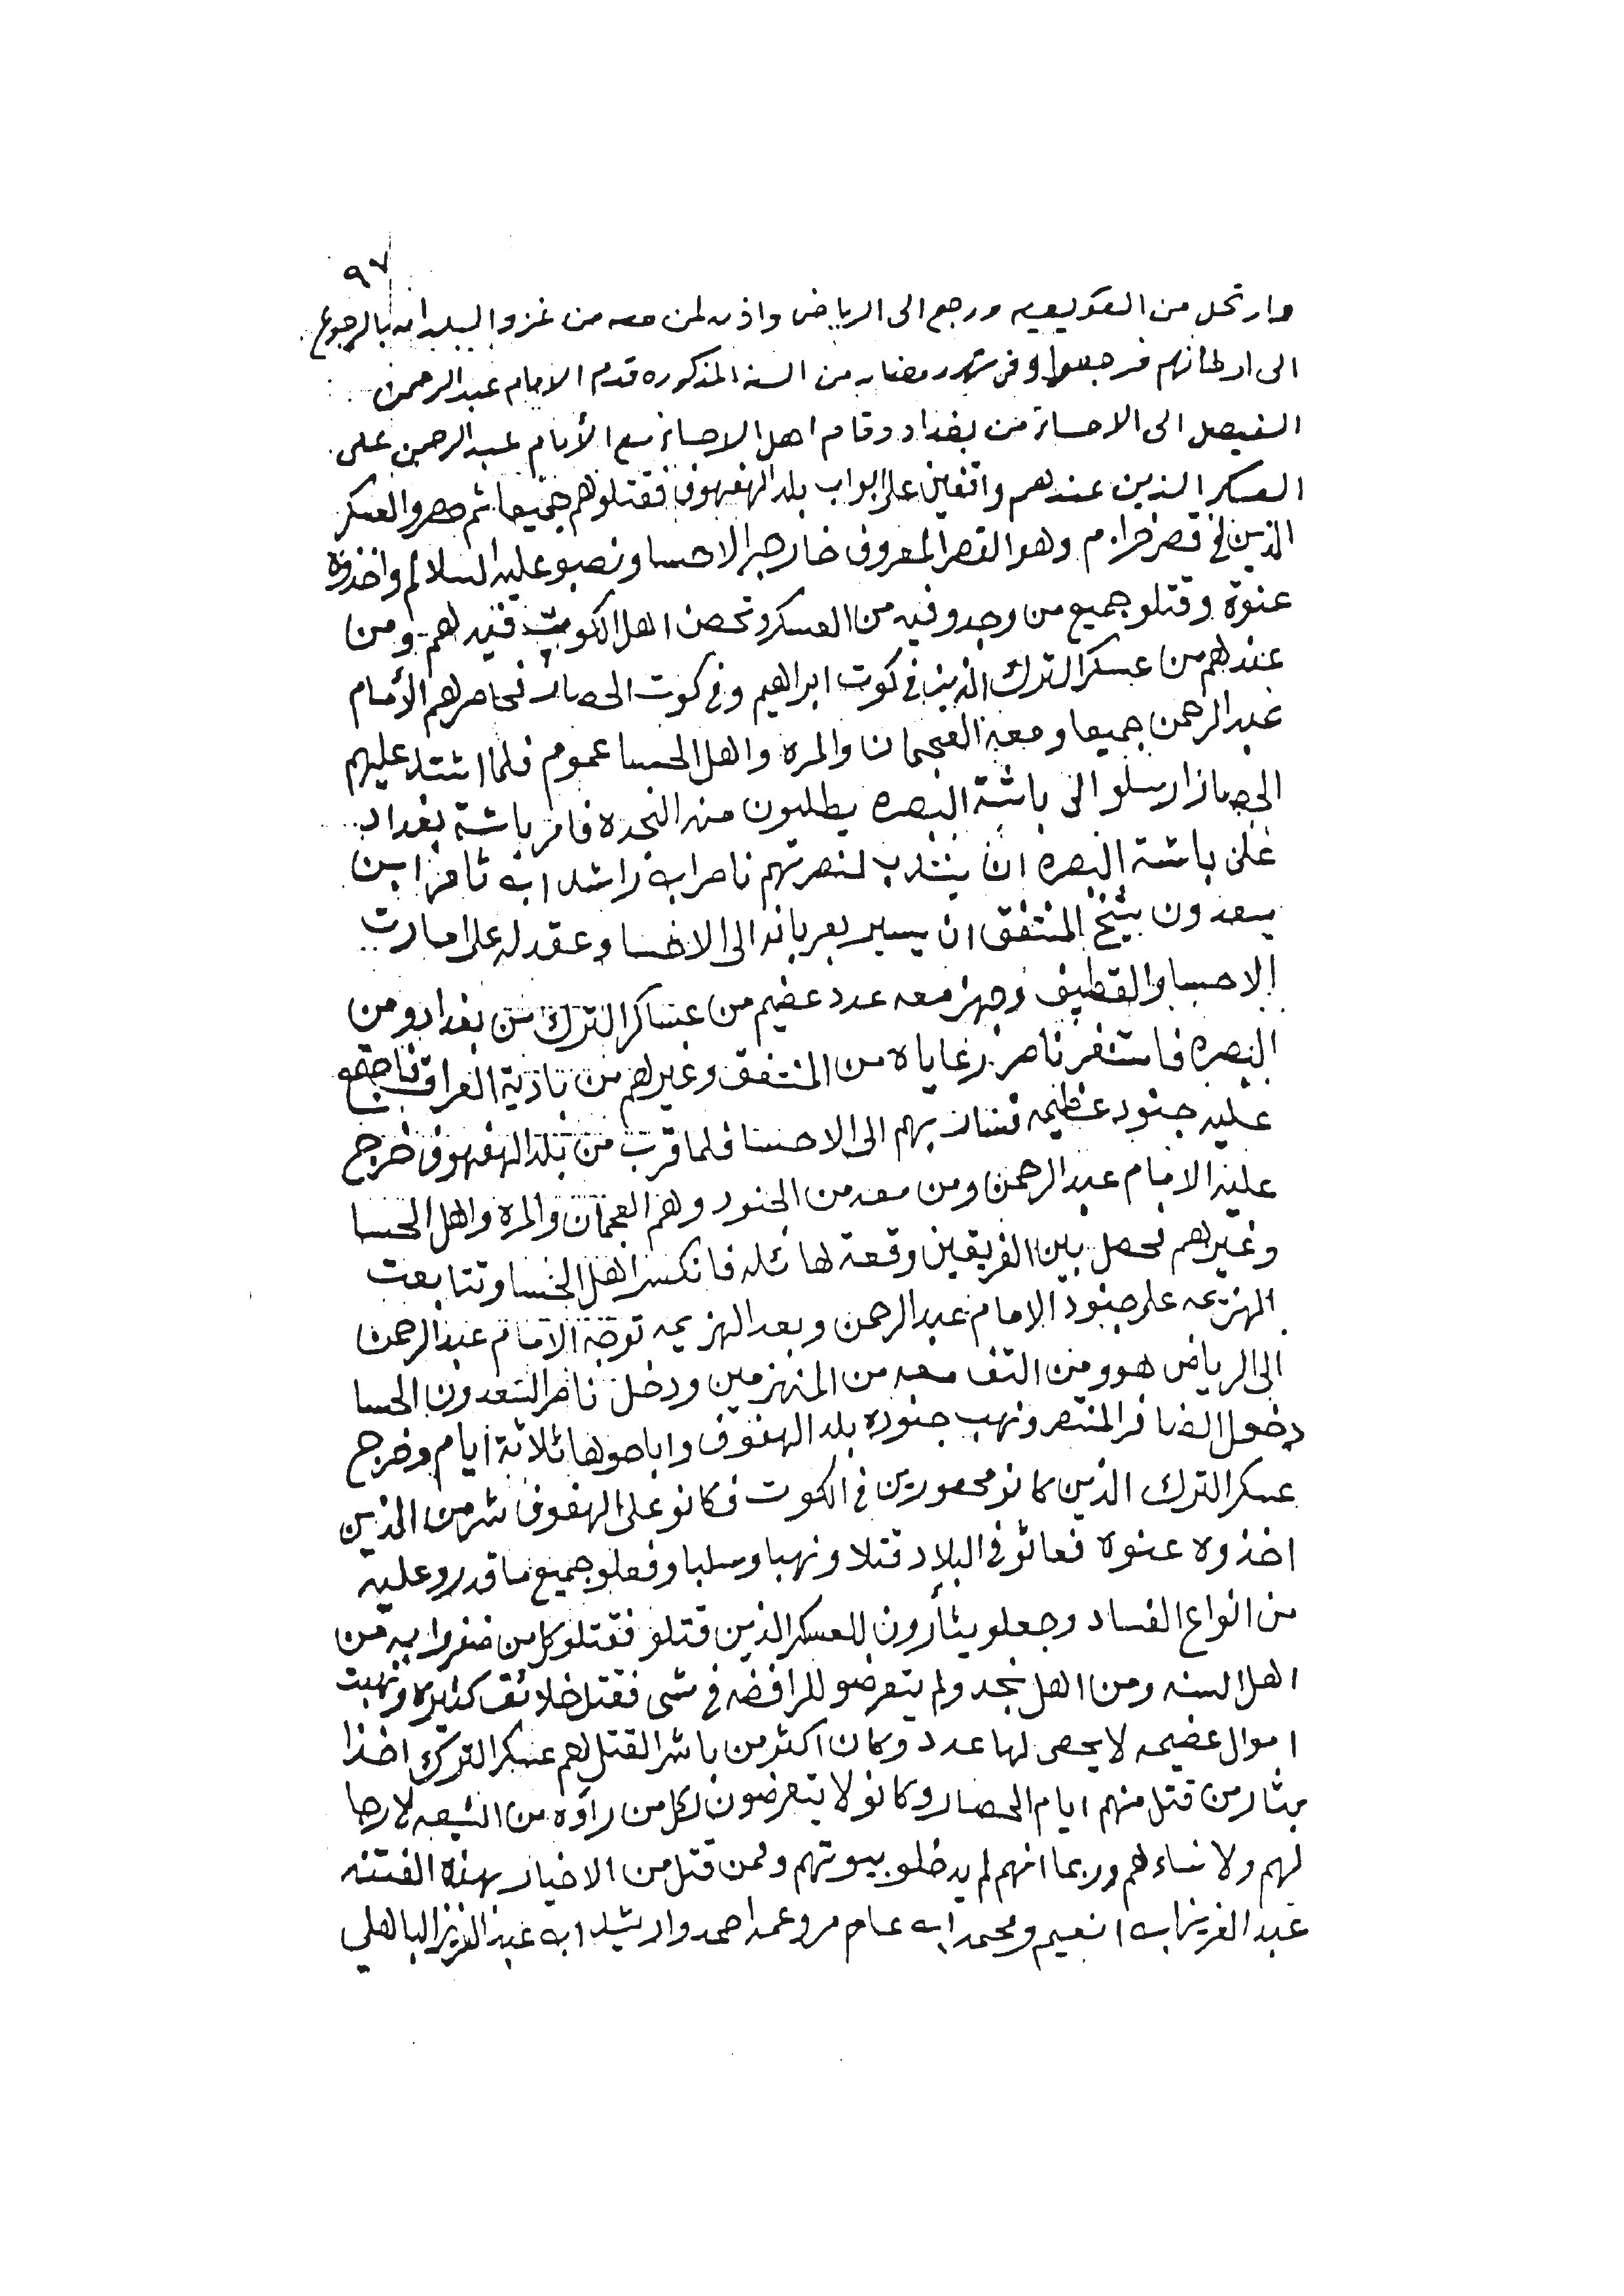 ٩٧
وارتحل من العكويعيه ورجع الى الرياض واذن لمن معه من غزو البلدان بالرجوع
الى اوطانهم فرجعوا وفي شهر رمضان من السنه المذكوره قدم الامام عبدالرحمن
الفيصل الى الاحساء من بغداد وقام اهل الاحساء مع الأمام عبدالرحمن على
العسكر الذين عندهم واقفين على ابواب بلد الهفهوف فقتلوهم جميعا ثم حصرو العسكر
الذين في قصر خزام وهو القصر المعروف خارج الاحسا ونصبو عليه السلالم واخذوه
عنوة وقتلو جميع من وجدو فيه من العسكر وتحصن اهل الكويت فيه هم ومن
عندهم من عسكر الترك الذين في كوت ابراهيم وفي كوت الحصار فحاصرهم الأمام
عبدالرحمن جميعا ومعه العجمان والمره واهل الحسا عموم فلما اشتد عليهم
الحصار ارسلو الى باشة البصره يطلبون منه النجده فامر باشة بغداد
على باشة البصره ان ينتدب لنصرتهم ناصر ابن راشد ابن ثامر ابن
سعدون شيخ المنتفق ان يسير بعربانه الى الاحسا وعقد له على امارت
الاحسا والقطيف وجهز معه عدد عضيم من عساكر الترك من بغداد ومن
البصره فاستنفر ناصر رعاياه من المنتفق وغيرهم من بادية العراق فاجتمع
عليه جنود عظيمه فسار بهم الى الاحسا فلما قرب من بلد الهفهوف خرج
عليه الامام عبدالرحمن ومن معه من الجنود وهم العجمان والمره واهل الحسا
وغيرهم فحصل بين الفريقين وقعة هائله فانكسر اهل الحسا وتتابعت
الهزيمه على جنود الامام عبدالرحمن وبعد الهزيمه توجه الامام عبدالرحمن
الى الرياض هو ومن التف معه من المنهزمين ودخل ناصر السعدون الحسا
دخول الضافر المنتصر ونهب جنوده بلد الهفوف واباحوها ثلاثة أيام وخرج
عسكر الترك الذين كانو محصورين في الكوت فكانو على الهفوف شر من الذين
اخذوه عنوه فعاثو في البلاد قتلا ونهبا وسلبا وفعلو جميع ما قدرو عليه
من انواع الفساد وجعلو يثأرون للعسكر الذين قتلو فقتلو كل من ضفروا به من
اهل السنه ومن اهل نجد ولم يتعرضو للرافضه في شى فقتل خلائق كثيره ونهبت
اموال عضيمه لا يحصى لها عدد وكان اكثر من باشر القتل هم عسكر الترك اخذا
بثار من قتل منهم ايام الحصار وكانو لا يتعرضون لكل من رأوه من الشيعه لا رجا
لهم ولا نساءهم وربما انهم لم يدخلو بيوتهم وممن قتل من الاخيار بهذه الفتنه
عبدالعزيز ابن انعيم ومحمد ابن عامر وعمد احمد وارشيد ابن عبدالعزيز الباهلي